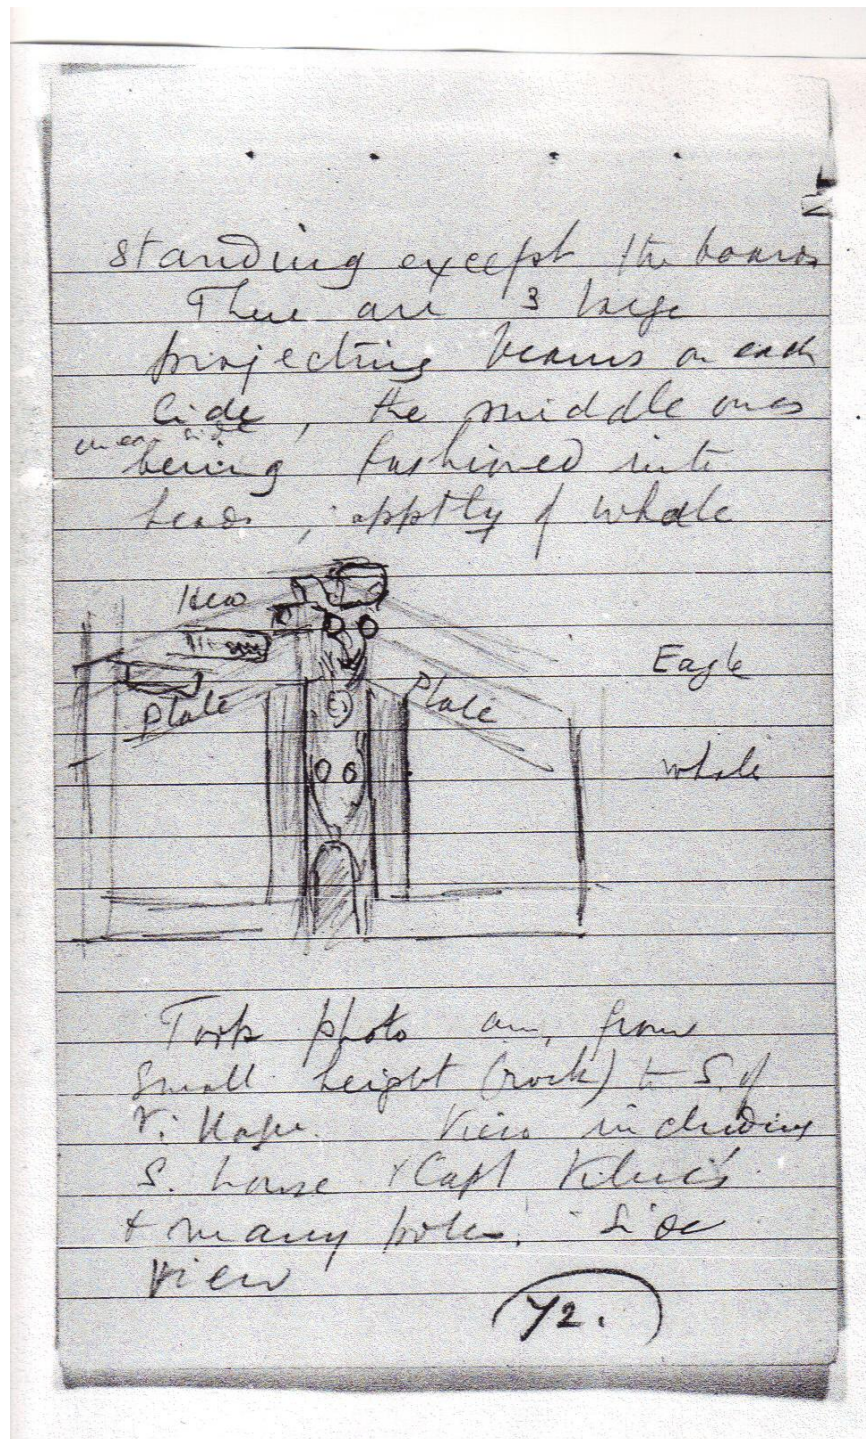 standing except the boards
There are 3 large
projecting beams on each
side, the middle ones
on each side
being fashioned into
heads, apptly of whale
Head
Plate
Plate
Eagle
whale
Took photo am, from
small height (rock) to S. of
Village. View including
S. house & Capt
& many poles. Side
view
72.